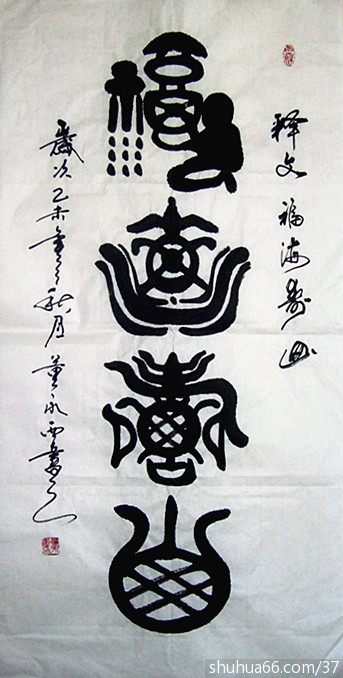 释文 福海寿山
福海寿山
歲次乙未年之秋月 董永西書
shuhua66.com/37